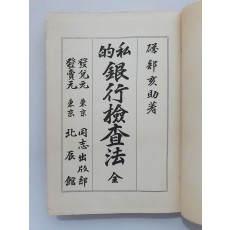 磯部亥助著
私的
銀行檢查法 全
發兌元 東京 同志出版部
發賣元 東京 北辰館